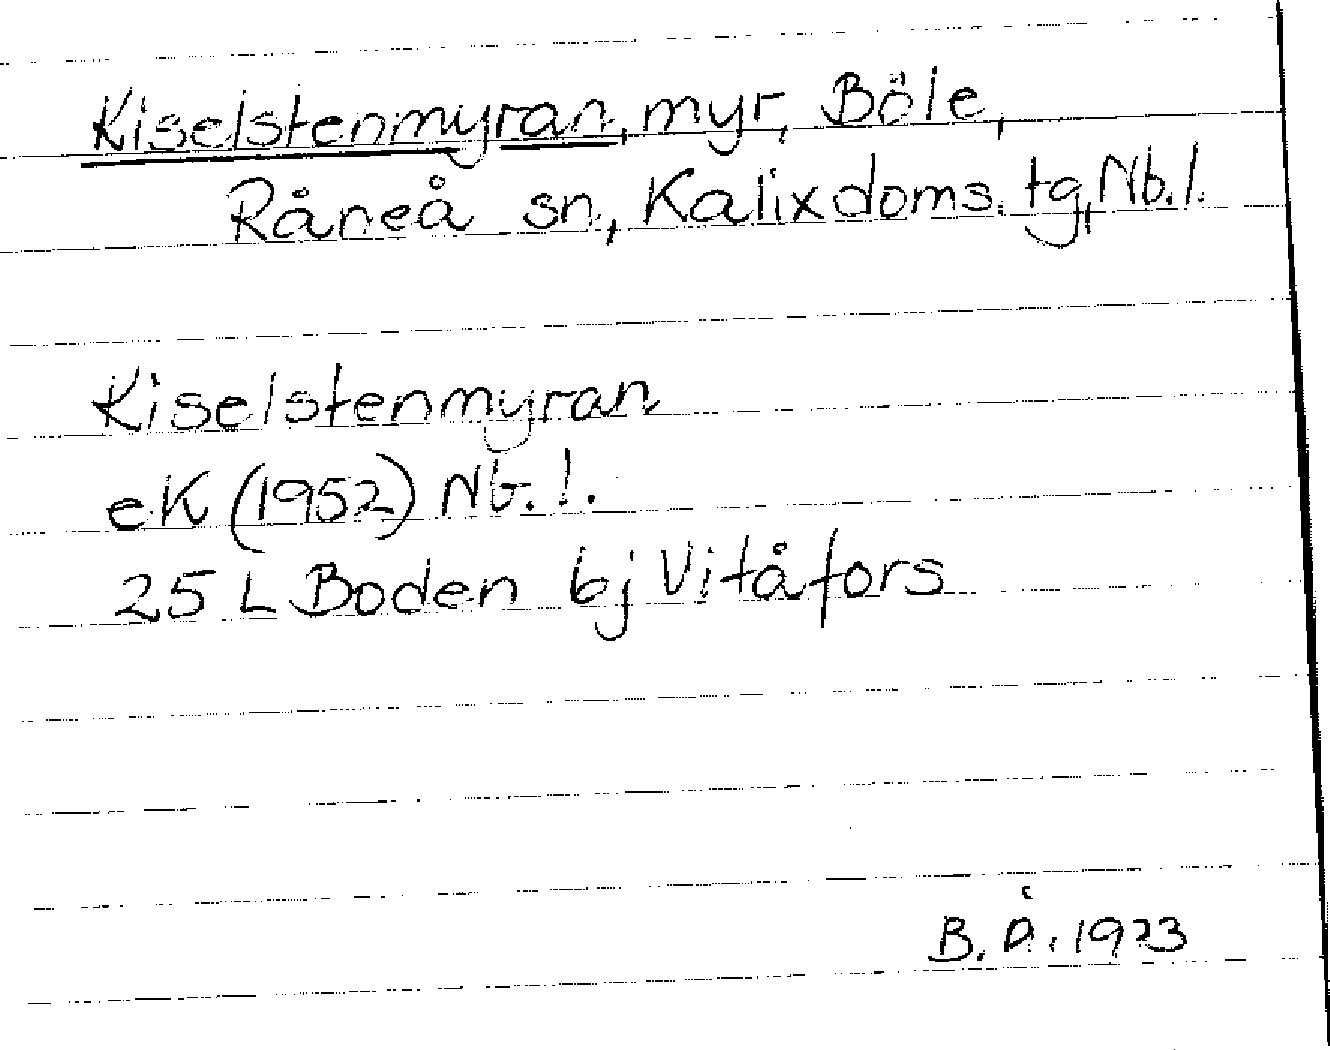 Kiselstenmyran, myr, Böle,
Råneå sn, Kalix doms. tg, Nb. l.
Kiselstenmyran
eK (1952) Nb. l.
25 L Boden bj Vitåfors
B. Å. 1923